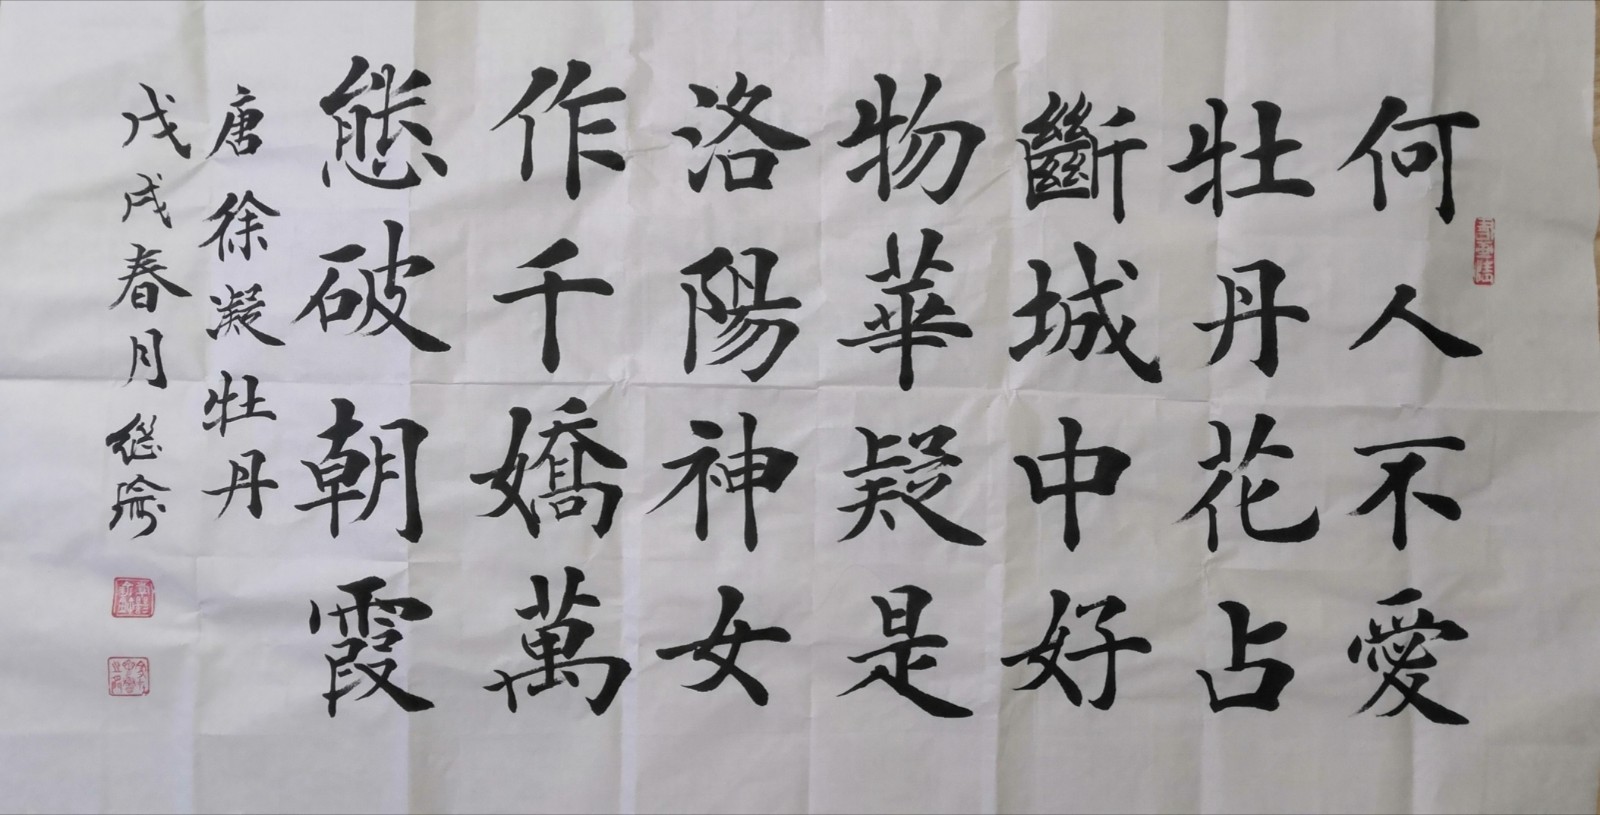 何人不愛
牡丹花占
斷城中好
物華疑是
洛陽神女
作千嬌萬
態破朝霞
唐徐凝牡丹
戊戌春月继瑜